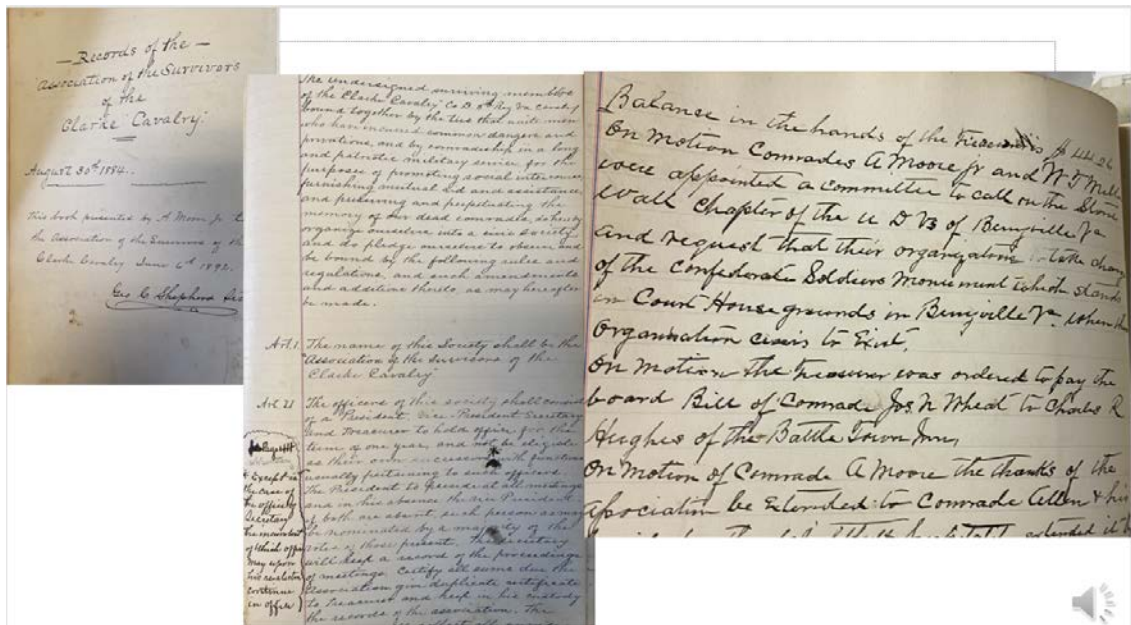 — Records of the —
Association of the Survivors
of the
Clarke Cavalry.
August 30th 1884.
This book presented by A Moore Jr to
the Association of the Survivors of the
Clarke Cavalry June 6th 1892.
Geo C. Shepherd
2
The undersigned surviving members
of the Clarke Cavalry Co D. 6th Reg Va Cavalry
bound together by the ties that unite men
who have incurred common dangers and
privations, and by comradeship in a long
and patriotic military service for the
purposes of promoting social intercourse
furnishing mutual aid and assistance
and preserving and perpetuating the
memory of our dead comrades, do hereby
organize ourselves into a civic society
and do pledge ourselves to observe and
be bound by the following rules and
regulations, and such amendments
and additions thereto, as may hereafter
be made.
Art. 1 The name of this Society shall be the
"Association of the Survivors of the
Clarke Cavalry"
Art 2 The officers of this society shall consist
of a President, Vice President Secretary
and Treasurer to hold office for the
term of one year, and not be eligible
as their own successors with functions
usually pertaining to such officers.
The President to preside at all meetings
and in his absence the Vice President
if both are absent, such person as may
be nominated by a majority of the
votes of those present. The Secretary
will keep a record of the proceedings
of meetings. Certify all sums due the
Association give duplicate certificate
to Treasurer and keep in his custody
the records of the association. The
Except in
the case of
the office of
Secretary
the incumbent
of which office
may upon
his reelection
continue
in office
Balance in the hands of the Treasurer is $ 44.26
On motion Comrades A Moore jr and W. T.
were appointed a committee to call on the Stone
Wall Chapter of the U D Vs of Berryville Va
and request that their organization to take charge
of the Confederate Soldiers Monument which stands
in Court House grounds in Berryville Va. when this
Organisation ceases to Exist.
On motion the Treasurer was ordered to pay the
board Bill of Comrade Jos. N Wheat to Charles R
Hughes of the Battle Town Inn,
On motion of Comrade A Moore the thanks of the
Association be Extended to Comrade Allen & his
extended it